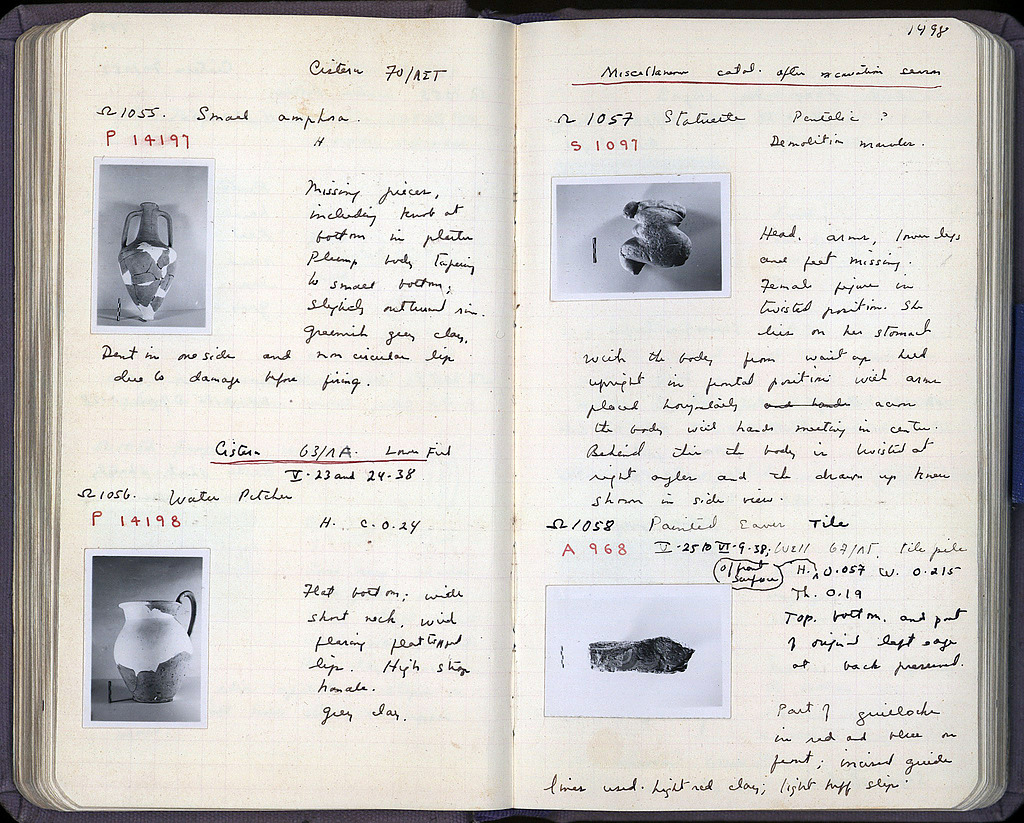 Cistern 70/ΛΣΤ
Ω 1055. Small amphora.
P 14197 H
Missing pieces,
including knob at
bottom in plaster
Plump body tapering
to small bottom;
Slightly outturned rim.
Greenish grey clay.
Dent in one side and non circular lip
due to damage before firing.
Cistern 63/ΛΑ. Lower Fill
V-23 and 24-38
Ω 1056. Water Pitcher
P 14198 H. C. 0.24
Flat bottom; wide
short neck, wide
flaring flattened
lip. High strap
handle.
Grey clay.
1498
Miscellaneous catal. after excavation season
Ω 1057 Statuette Pentelic ?
S 1097 Demolition marbles.
Head, arms, lower legs
and feet missing.
Female figure in
twisted position. She
lies on her stomach
with the body from waist up held
upright in frontal position with arms
placed horizontally and hands across
the body with hands meeting in center.
Behind this the body is twisted at
right angles and the drawn up knees
shown in side view.
Ω 1058 Painted Eaves Tile
A 968 V-25 to VI-9-38; Well 67/ΛΤ, tile pile
of front surface H. 0.057 W. 0.215
Th. 0.19
Top, bottom, and part
of original left edge
at back preserved.
Part of guilloche
in red and blue on
front; incised guide
lines used. Light red clay; light buff slip.